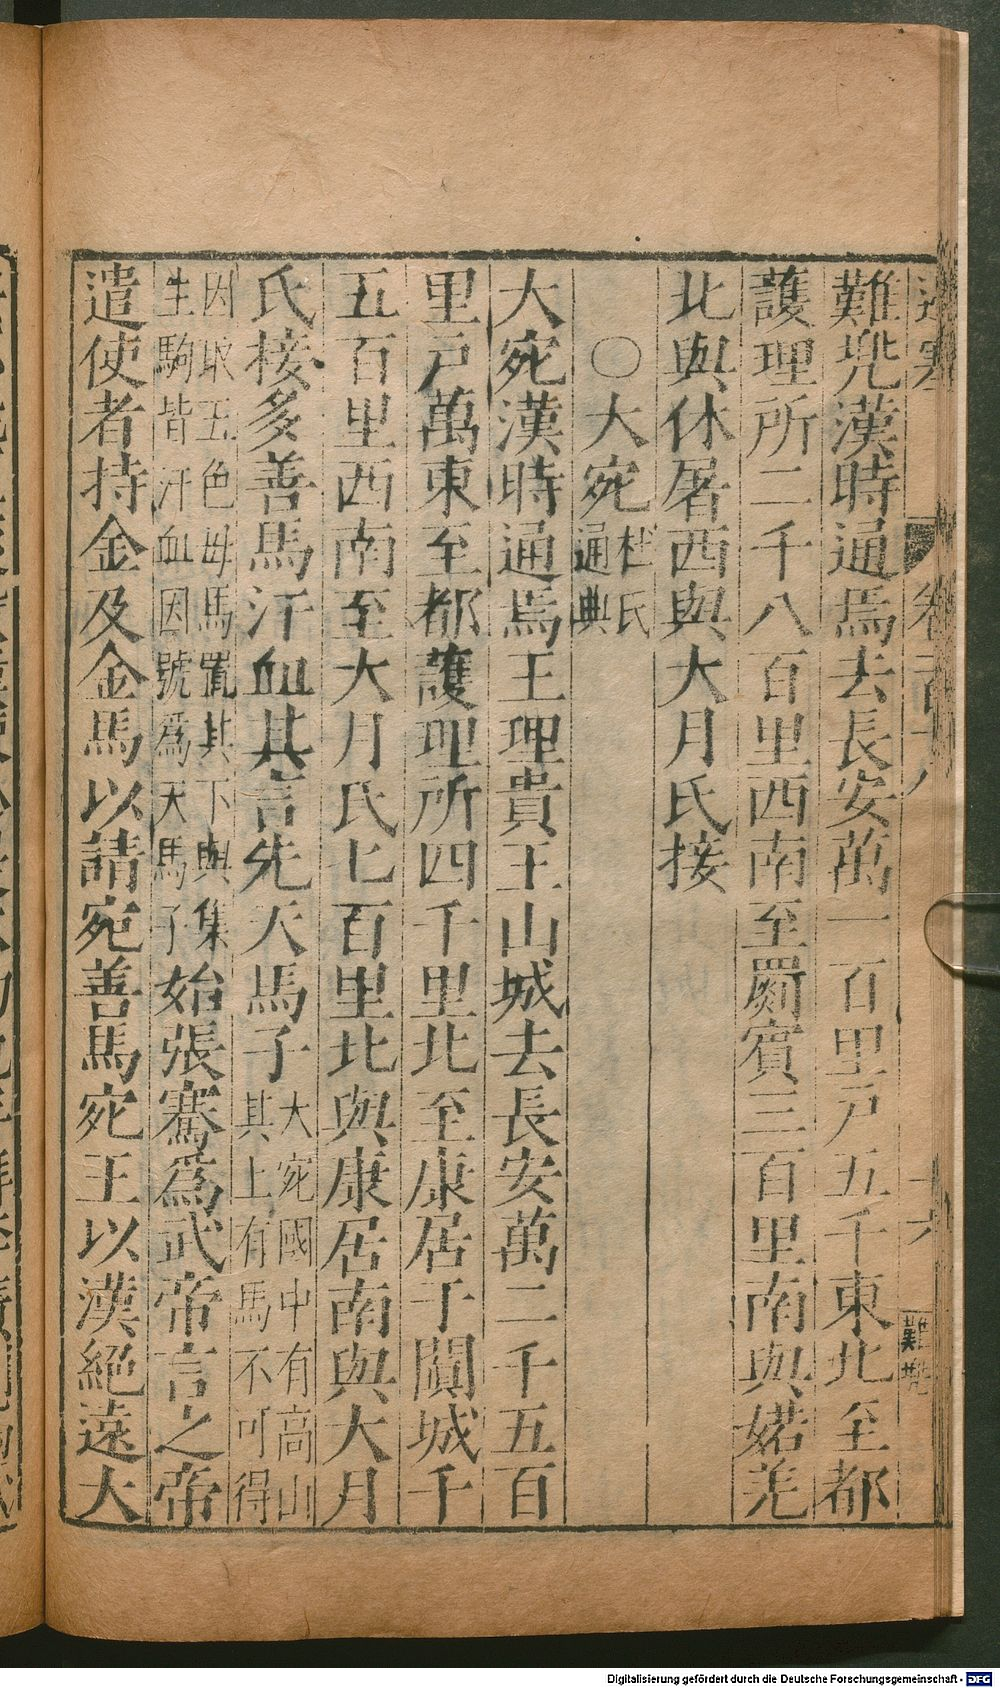 難兠漢時通焉去長安萬一百里戸五千東北至都
護理所二千八百里西南至罽賓三百里南與婼羌
北與休屠西與大月氏接
○大宛杜氏通典
大宛漢時通焉王理貴王山城去長安萬二千五百
里戸萬東至都護理所四千里北至康居于闐城千
五百里西南至大月氏七百里北與康居南與大月
氏接多善馬汗血其言先天馬子大宛國中有高山其上有馬不可得
因取五色母馬置其下與集生駒皆汗血因號爲天馬子始張騫爲武帝言之帝
遣使者持金及金馬以請宛善馬宛王以漢絕遠大
Digitalisierung gefördert durch die Deutsche Forschungsgemeinschaft - DFG